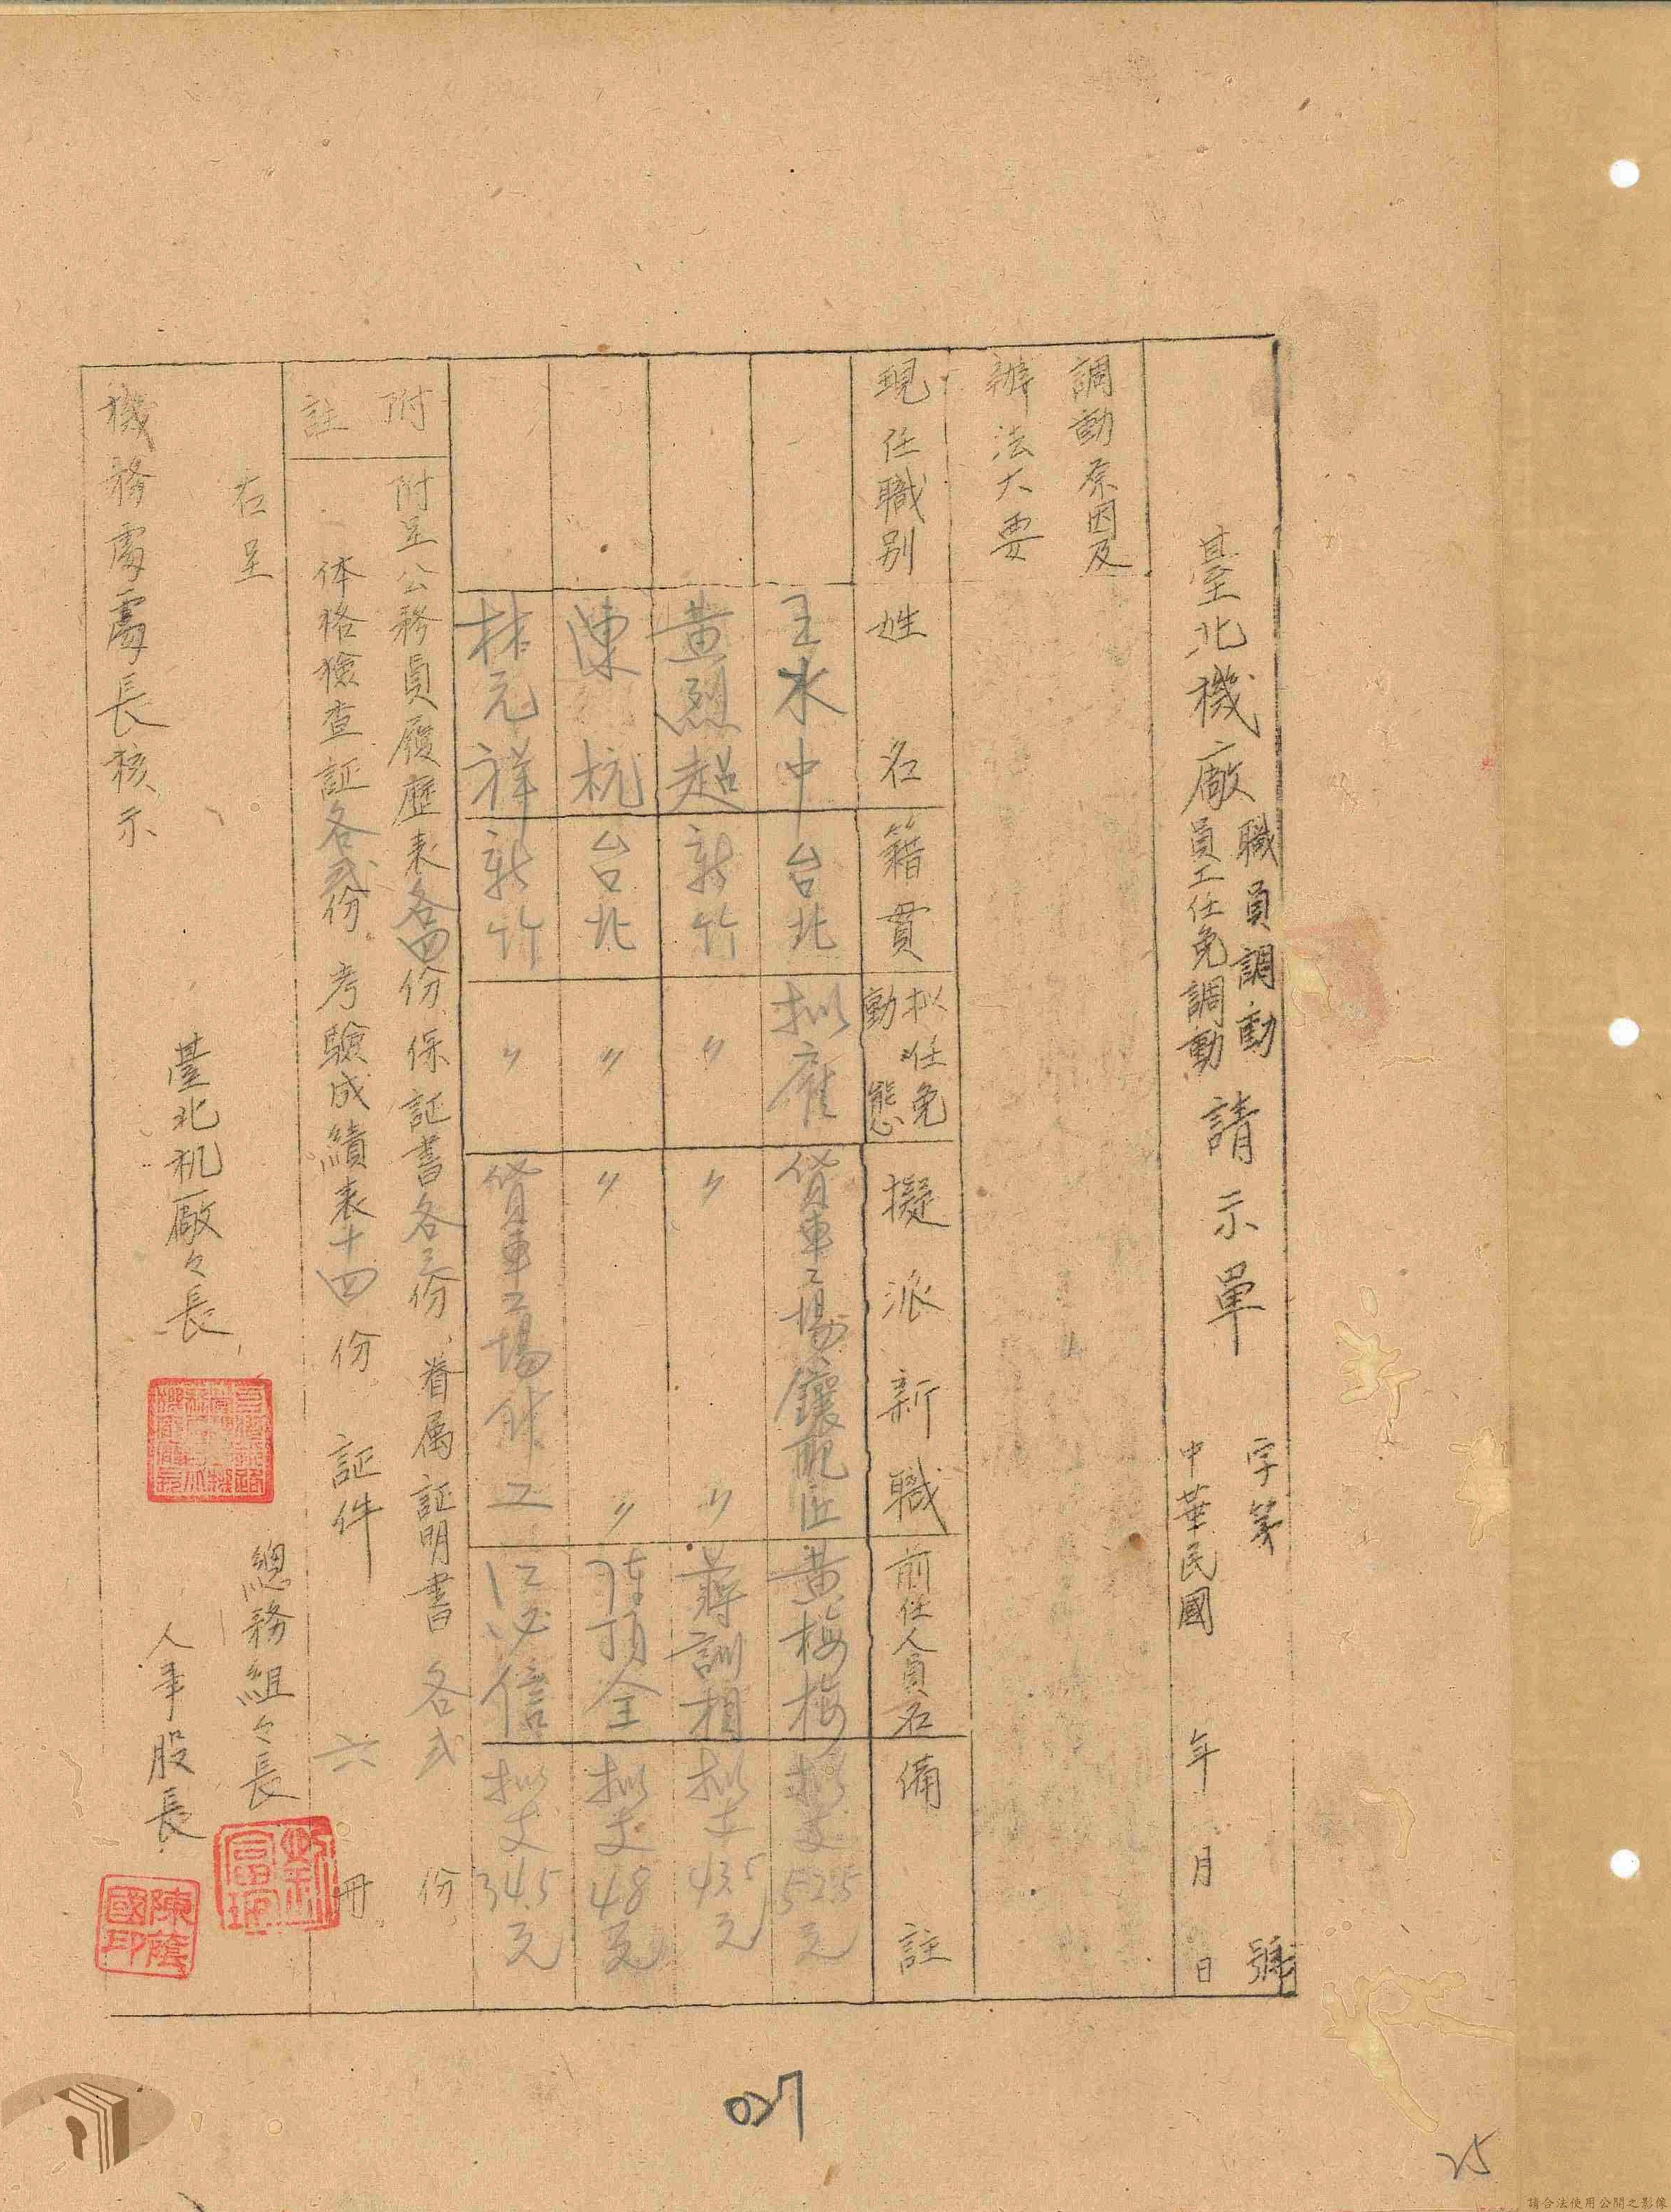 字第 號
職員調動
臺北機廠員工任免調動請示單
中華民國 年 月 日
調動原因及
辦法大要
現任職別 姓名 籍貫 拟任免動態 擬派新職 前任人員名 備註
王水中 台北 拟雇 貨車工場鑲配匠 黃梅梅 拟支52.5元
黃烈超 新竹 〃 〃 〃 蔣訓相 拟支43.5元
陳杭 台北 〃 〃 〃 頂全 拟支48元
林元祥 新竹 〃 貨車工場 工 江必信 拟支34.5元
附註
附呈公務員履歷表各四份、保証書各三份、眷属証明書各式份、
体格檢查証各貳份、考驗成績表十四份 証件六冊
右呈
機務處處長核示
臺北机廠々長
總務組々長
人事股長
陳蔭國印
027
25
請合法使用公開之影像